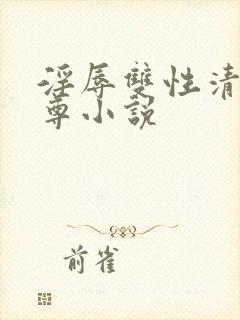 淫辱雙性清
尊小說
前雀